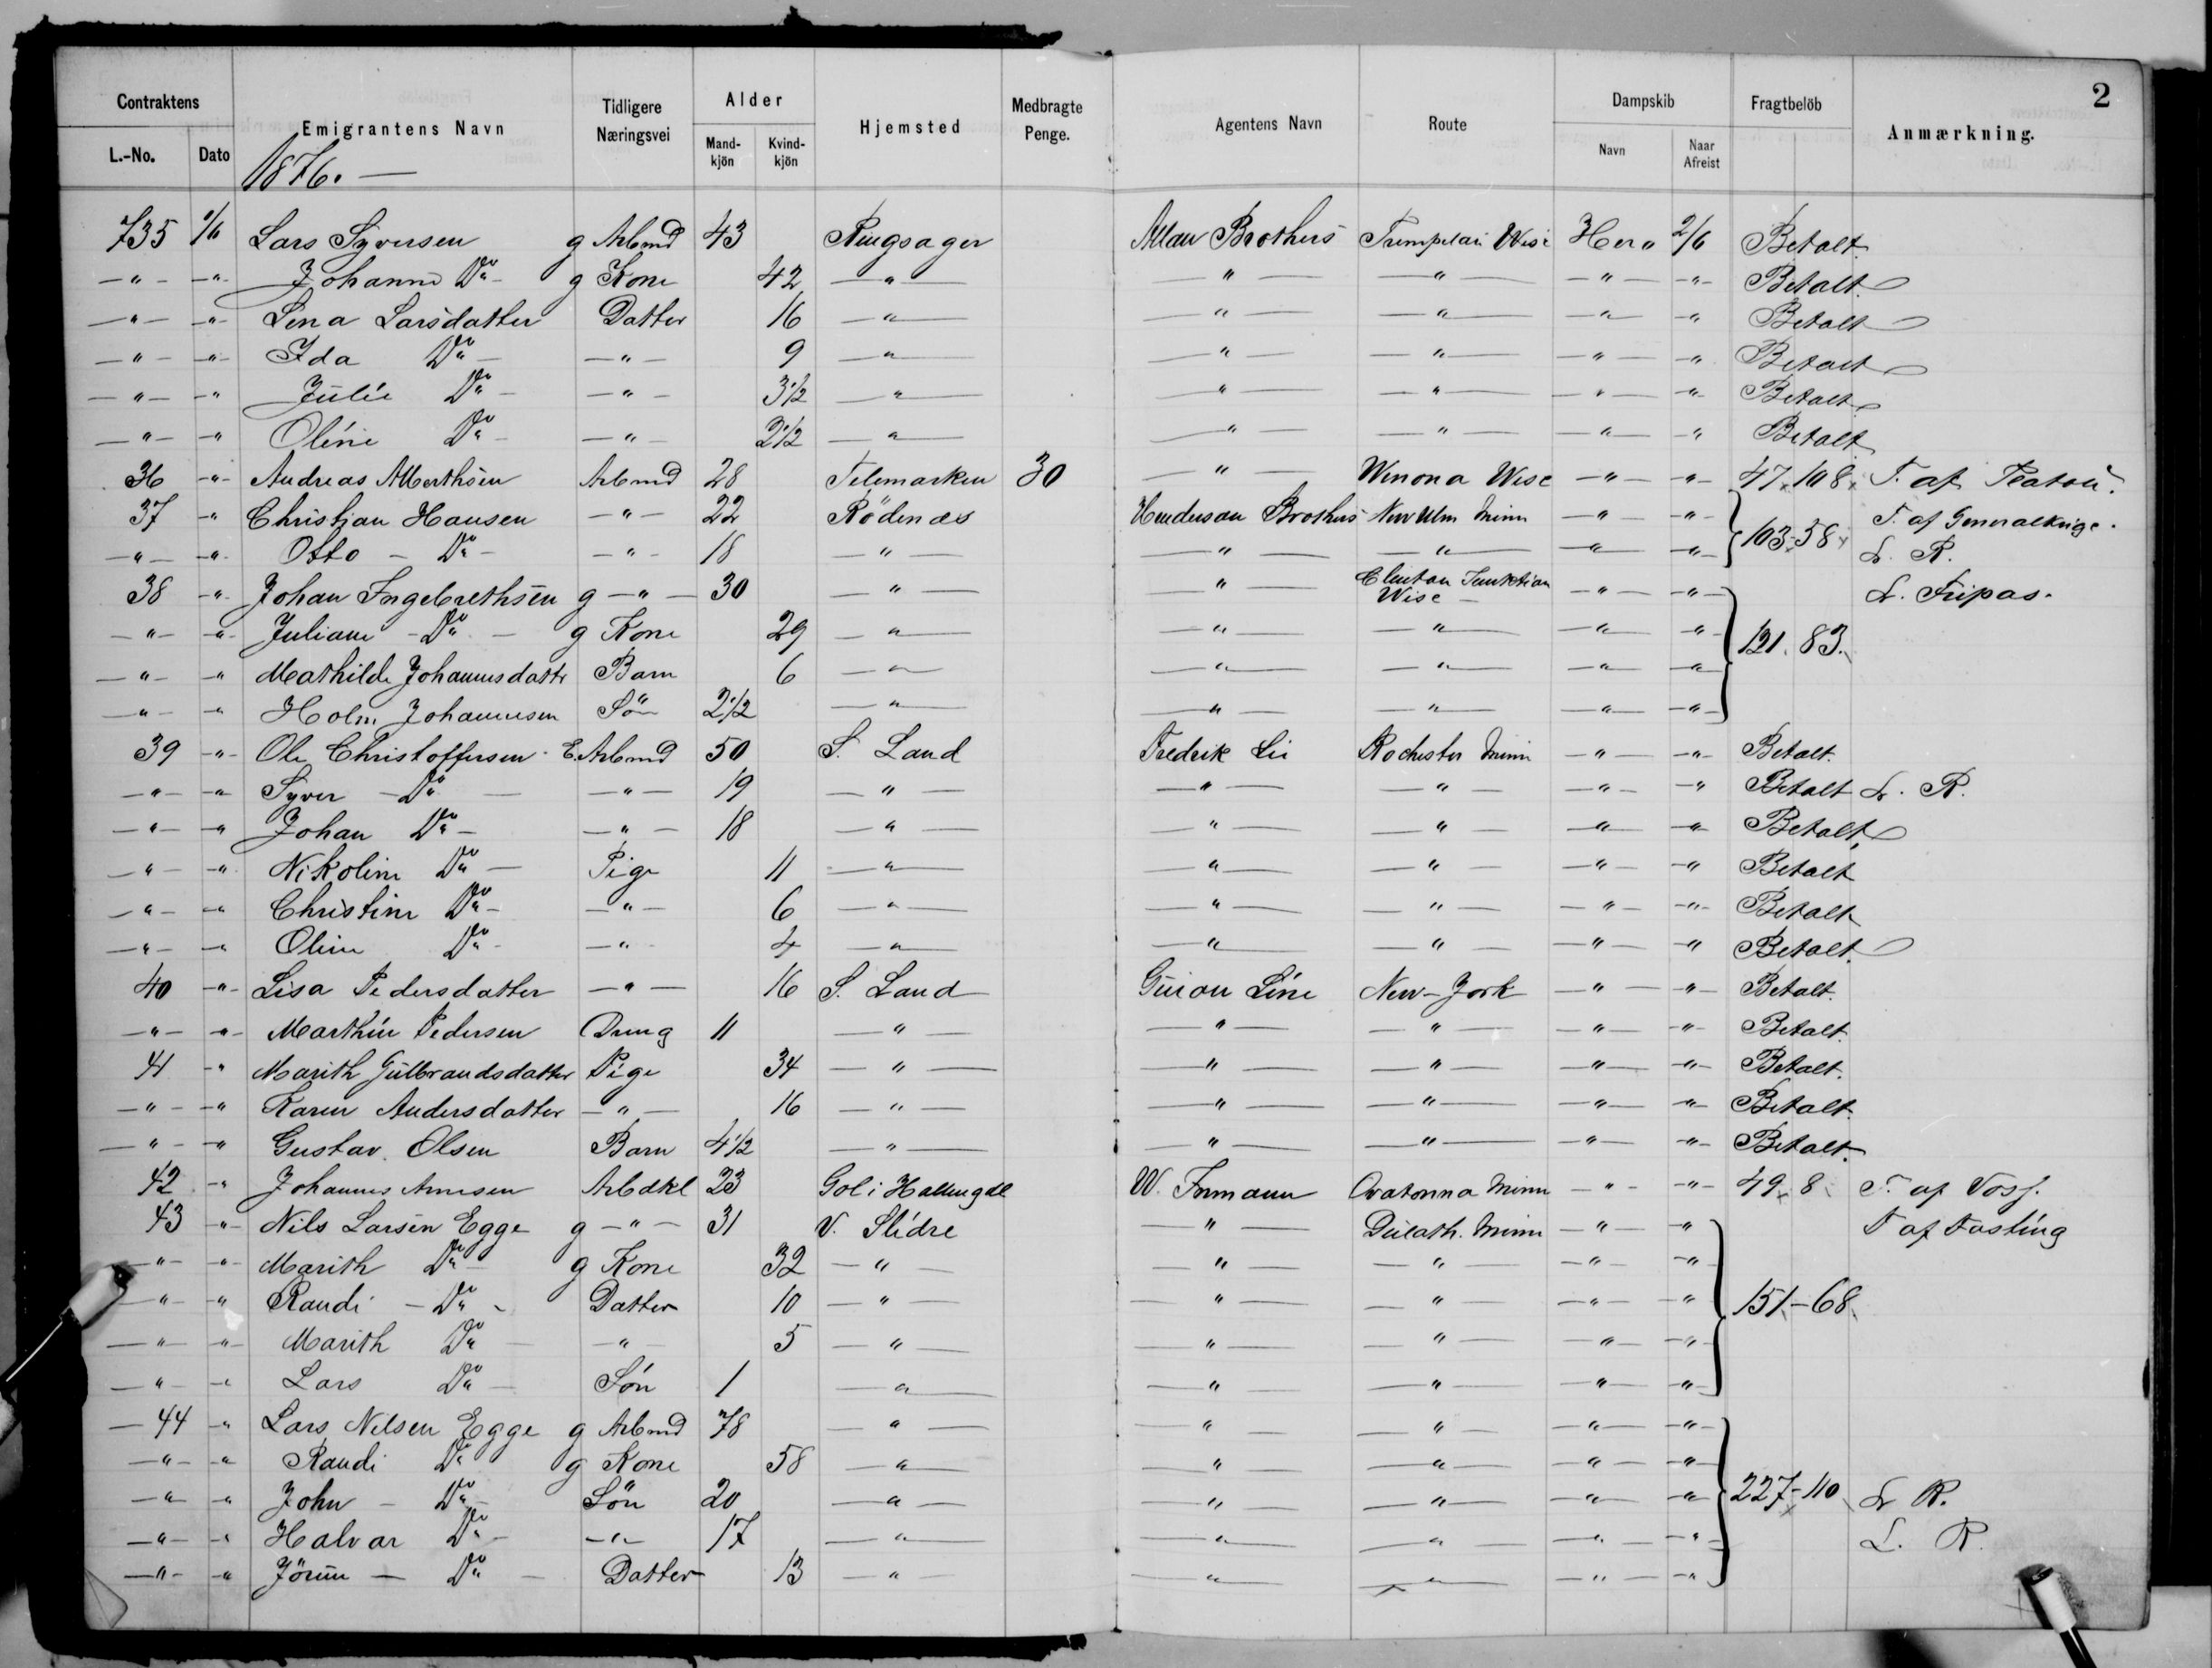 2
Contraktens | Emigrantens Navn | Tidligere Næringsvei | Alder | Hjemsted | Medbragte Penge. | Agentens Navn | Route | Dampskib | Fragtbelöb | Anmærkning.
L.-No. | Dato | Mandkjön | Kvindkjön | Navn | Naar Afreist
1876. —
735 1/6 Lars Syversen g Arbmd 43 Ringsager Allan Brothers Trempelau Wisc Hero 2/6 Betalt
-"- -"- Johanne Do g Kone 42 -"- -"- -"- -"- -"- Betalt.
-"- -"- Lena Larsdatter Datter 16 -"- -"- -"- -"- -"- Betalt
-"- -"- Ida Do -"- 9 -"- -"- -"- -"- -"- Betalt
-"- -"- Julie Do -"- 3½ -"- -"- -"- -"- -"- Betalt
-"- -"- Oline Do -"- 2½ -"- -"- -"- -"- -"- Betalt
36 -"- Andreas Alberthsen Arbmd 28 Telemarken 30 -"- Winona Wisc -"- -"- 47. 108. T. af
37 -"- Christian Hansen -"- 22 Rödenæs Henderson Brothers New Ulm Minn -"- -"- 103-58 T. af Generalkrigc.
-"- -"- Otto - Do - -"- 18 -"- -"- -"- -"- -"- L. R.
38 -"- Johan Ingebrethsen g -"- 30 -"- -"- Clinton Junktion Wisc - -"- -"- 121. 83. L. Fripas.
-"- -"- Juliane - Do - g Kone 29 -"- -"- -"- -"- -"-
-"- -"- Mathilde Johannesdattr Barn 6 -"- -"- -"- -"- -"-
-"- -"- Holm Johannesen Sön 2½ -"- -"- -"- -"- -"-
39 -"- Ole Christoffersen E. Arbmd 50 S. Land Fredrik Lie Rochester Minn -"- -"- Betalt.
-"- -"- Syver - Do - -"- 19 -"- -"- -"- -"- -"- Betalt L. R.
-"- -"- Johan Do - -"- 18 -"- -"- -"- -"- -"- Betalt
-"- -"- Nikoline Do - Pige 11 -"- -"- -"- -"- -"- Betalt
-"- -"- Christine Do - -"- 6 -"- -"- -"- -"- -"- Betalt
-"- -"- Oline Do - -"- 4 -"- -"- -"- -"- -"- Betalt.
40 -"- Lisa Pedersdatter -"- 16 S. Land Guion Line New-York -"- -"- Betalt.
-"- -"- Marthin Pedersen Dreng 11 -"- -"- -"- -"- -"- Betalt.
41 -"- Marith Gulbrandsdatter Pige 34 -"- -"- -"- -"- -"- Betalt.
-"- -"- Karen Andersdatter -"- 16 -"- -"- -"- -"- -"- Betalt.
-"- -"- Gustav Olsen Barn 4½ -"- -"- -"- -"- -"- Betalt.
42 -"- Johannes Arnesen Arbdkl 23 Gol i Hallingdl W. Inmann Ovatonna Minn -"- -"- 49. 8. T. af Voss.
43 -"- Nils Larsen Egge g -"- 31 V. Slidre -"- Duluth. Minn -"- -"- 151-68 T af Fasting
-"- -"- Marith Do - g Kone 32 -"- -"- -"- -"- -"-
-"- -"- Randi - Do - Datter 10 -"- -"- -"- -"- -"-
-"- -"- Marith Do - -"- 5 -"- -"- -"- -"- -"-
-"- -"- Lars Do - Sön 1 -"- -"- -"- -"- -"-
44 -"- Lars Nilsen Egge g Arbmd 78 -"- -"- -"- -"- -"- 227-110
-"- -"- Randi Do g Kone 58 -"- -"- -"- -"- -"-
-"- -"- John - Do - Sön 20 -"- -"- -"- -"- -"- L R.
-"- -"- Halvor Do - -"- 17 -"- -"- -"- -"- -"- L. R.
-"- -"- Jörun - Do - Datter 13 -"- -"- -"- -"- -"-